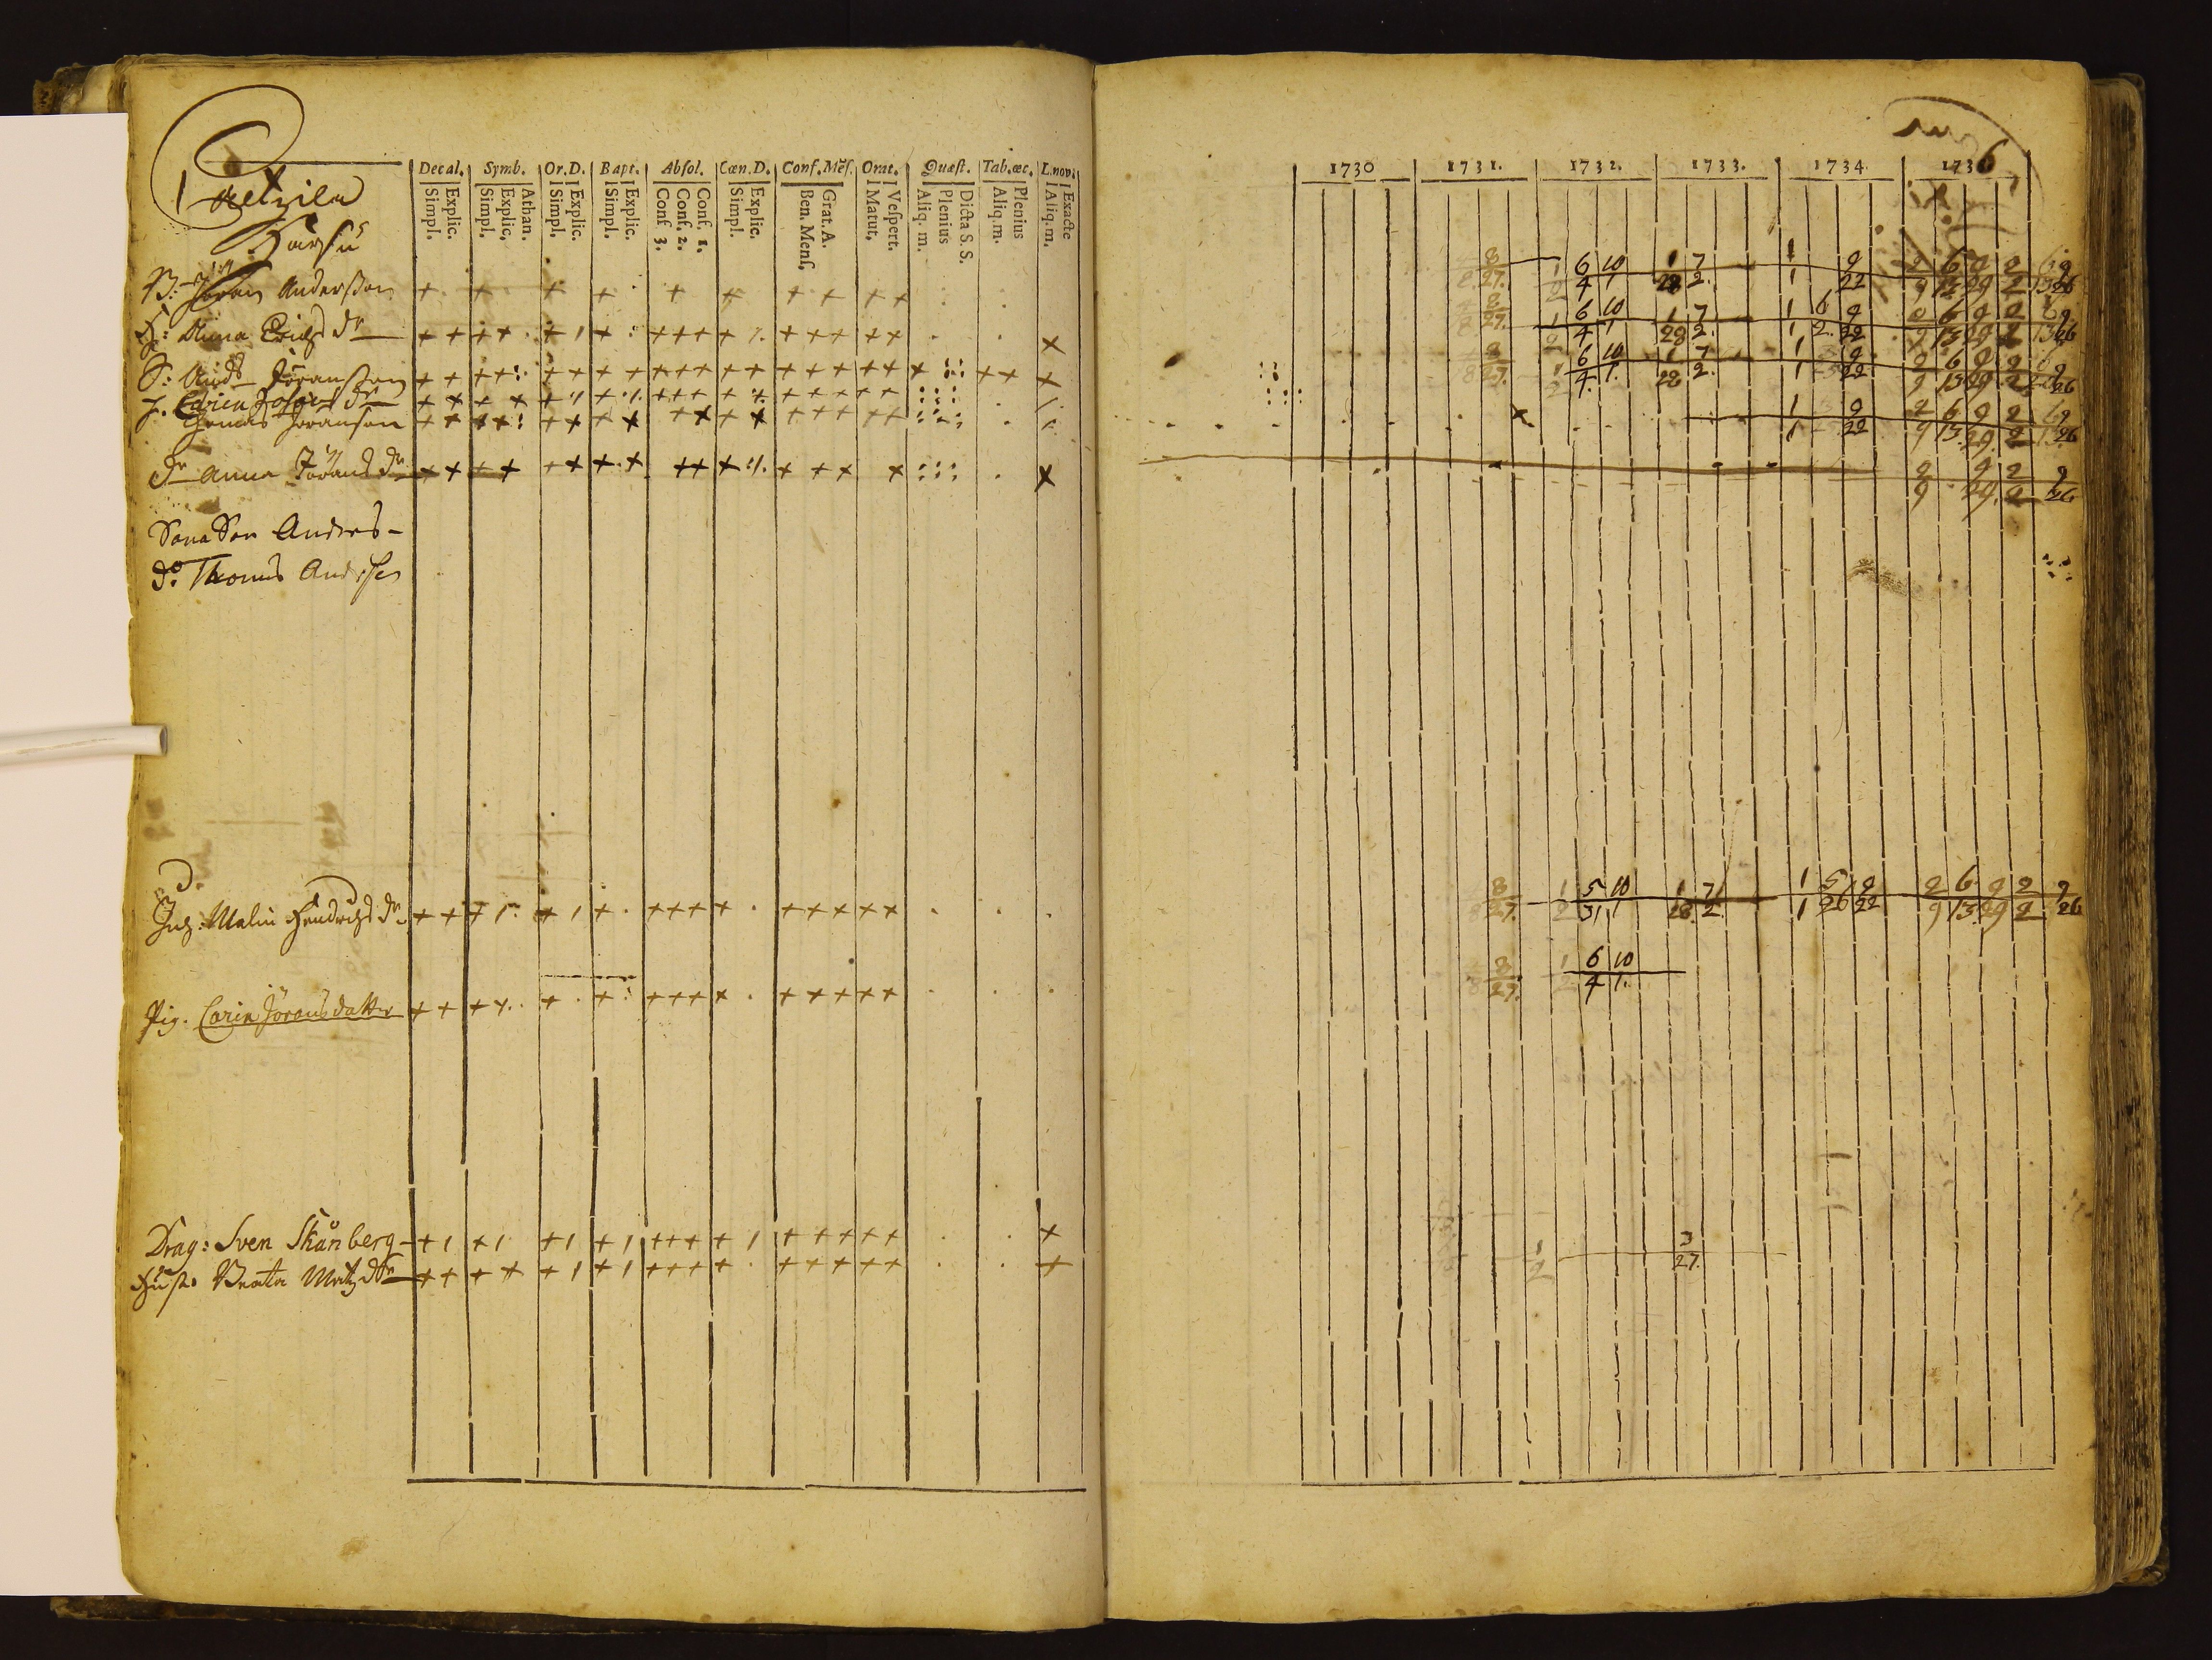 Decal. Symb. Or.D. Bapt. Absol. Cœn.D. Conf.Mēs. Orat. Quæst. Tab.œc. L.nov.
Simpl. Explic. Simpl. Explic. Athan. Simpl. Explic. Simpl. Explic. Conf. 3. Conf. 2. Conf. 1. Simpl. Explic. Ben. Mens. Grat. A. Matut. Vespert. Aliq. m. Plenius Dicta S. S. Aliq. m. Plenius Aliq. m. Exacte
B: Jöran Andersson
H: Anna Erichs dr
S: Anders Jöransson
Carin
Thomas Jöransson
dr Anna Jörans dr
Sona Son Anders
do Thomas Andersson
Malin Hendrichs dr
Pig. Carin Jöransdotter
Drag: Sven Skånberg
Hust. Beata Matz dr
1730 1731. 1732. 1733. 1734. 173
6
8 1 6 10 1 7 1 9 2 6 9 2 9
27. 2 4 1 28 2. 1 22 9 13 29 2 26
8 1 6 10 1 7 1 6 9 2 6 9 2 9
27. 2 4 1 28 2. 1 2. 22 9 13 29 2 26
8 1 6 10 1 7 1 9 2 6 9 2 9
27. 2 4. 1. 28 2. 1 22 9 13 29 2 26
1 9 2 6 9 2 9
1 22 9 13. 29. 2 26
2 9 2 9
9 29. 2 26
8 1 5 10 1 7 1 5 9 2 6 9 2 9
27. 2 31 1 28. 2. 1 26 22 9 13. 29 2 26
8 1 6 10
27. 2 4 1.
1 3
2 27.